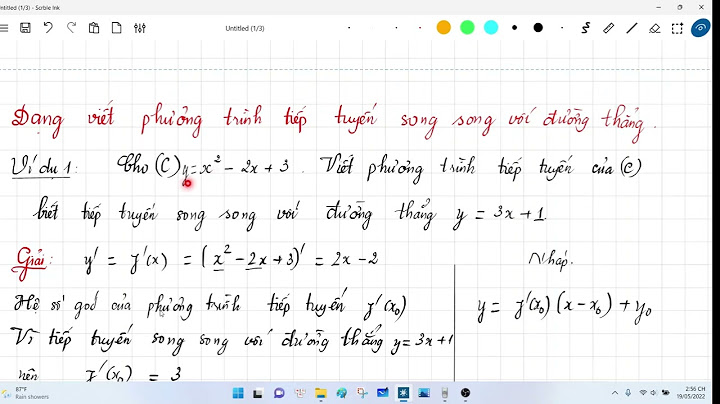 Untitled (1/3) - Scrble Ink
Untitled (1/3)
Dạng viết phương trình tiếp tuyến song song với đường thẳng.
Ví dụ 1: Cho (C) y = x² - 2x + 3. Viết phương trình tiếp tuyến của (C)
biết tiếp tuyến song song với đường thẳng y = 3x + 1
Giải: y' = f'(x) = (x² - 2x + 3)' = 2x - 2
Nháp.
Hệ số góc của phương trình tiếp tuyến f'(x₀)
y = f'(x₀)(x - x₀) + y₀
Vì tiếp tuyến song song với đường thẳng y = 3x + 1
nên f'(x₀) = 3
87°F
Rain showers
2:56 CH
19/05/2022